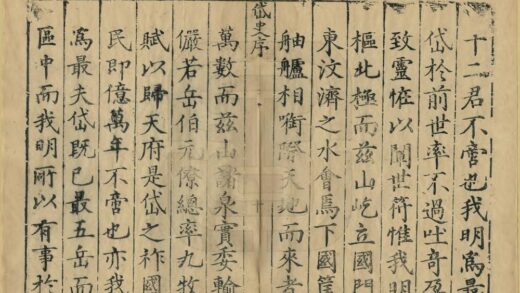 十二君不啻也我明爲最
岱於前世率不過吐奇孕
致靈怪以闡世符惟我明
樞北極而茲山屹立國門
東汶濟之水會焉下國篚
舳艫相銜際天地而來者
岱史序
萬數而茲山諸泉實委輸
儼若岳伯元僚總率九牧
賦以歸天府是岱之祚國
民即億萬年不啻也亦我
爲最夫岱既已最五岳而
區中而我明所以有事於